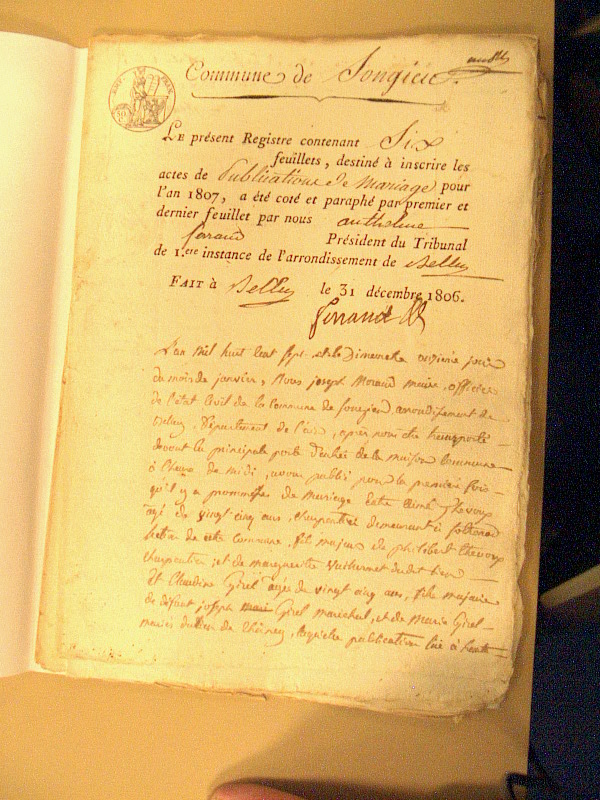 Commune de Songieu.
LE présent Registre contenant Six
feuillets, destiné à inscrire les
actes de Publications de Mariage pour
l'an 1807, a été coté et paraphé par premier et
dernier feuillet par nous anthelme
ferrand Président du Tribunal
de 1.ere instance de l'arrondissement de Belley
FAIT à Belley le 31 décembre 1806.
ferrand
L'an Mil huit Cent Sept et le Dimanche onzieme jour
du mois de janvier, Nous joseph Morand maire, officier
de l'état Civil de la Commune de Songieu, arrondissement de
Belley, Département de l'ain, après nous être transporté
devant la principale porte d'entrée de la maison Commune
à l'heure de midi, avons publié pour la premiere fois
qu'il y a promesses de Mariage Entre aimé thevoux
agé de vingt cinq ans, charpentier demeurant à
Section de cette commune, fils majeur de philibert thevoux
charpentier, et de marguerite Vuillermet dudit Lieu
Et Claudine Girel agée de vingt cinq ans, fille majeure
de défunt joseph Girel maréchal, et de Marie Girel
mariés du lieu de, laquelle publication lüe à haute